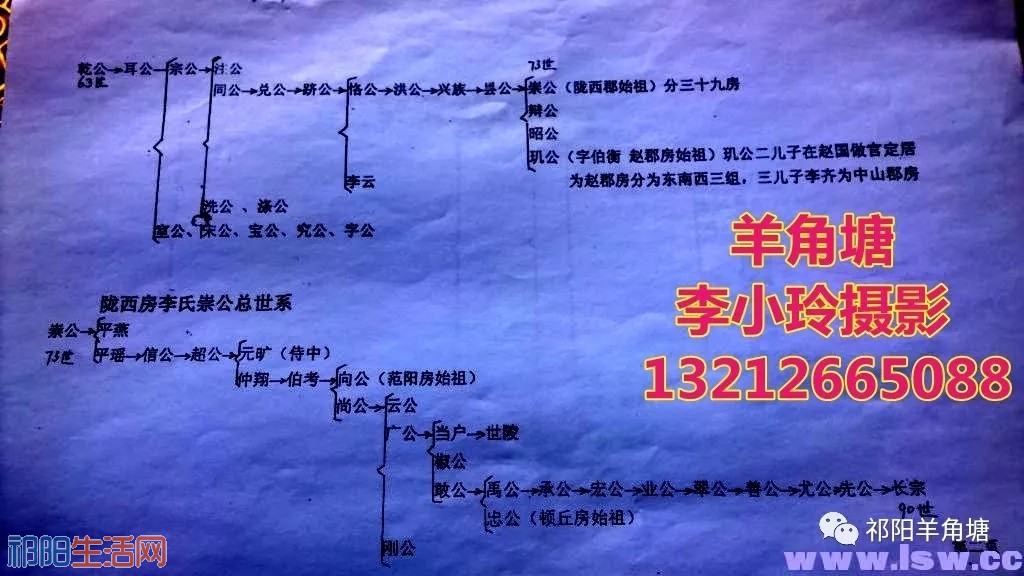 73世
乾公→耳公→宗公→注公
63世
同公→兑公→跻公→恪公→洪公→兴族→昙公→崇公（陇西郡始祖）分三十九房
辩公
昭公
玑公（字伯衡 赵郡房始祖）玑公二儿子在赵国做官定居
李云
为赵郡房分为东南西三组，三儿子李齐为中山郡房
洗公、涤公
室公、床公、宝公、究公、字公
羊角塘
李小玲摄影
13212665088
陇西房李氏崇公总世系
崇公→平燕
73世
平瑶→信公→超公→元旷（侍中）
仲翔→伯考→向公（范阳房始祖）
尚公→云公
广公→当户→世陵
椒公
敢公→禹公→承公→宏公→业公→翠公→善公→尤公→先公→长宗
90世
忠公（顿丘房始祖）
刚公
祁阳羊角塘
祁阳生活网
www.lsw.cc